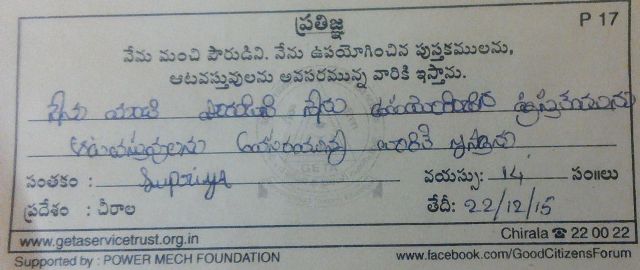 ప్రతిజ్ఞ P 17
నేను మంచి పౌరుడిని. నేను ఉపయోగించిన పుస్తకములను,
ఆటవస్తువులను అవసరమున్న వారికి ఇస్తాను.
నేను మంచి పౌరుడిని నేను ఉపయోగించిన పుస్తకములను
ఆటవస్తువులను అవసరమున్న వారికి ఇస్తాను
సంతకం : Supriya వయస్సు: 14 సం॥లు
ప్రదేశం : చీరాల తేదీ: 22/12/15
www.getaservicetrust.org.in Chirala ☎ 22 00 22
Supported by : POWER MECH FOUNDATION www.facebook.com/GoodCitizensForum
GETA